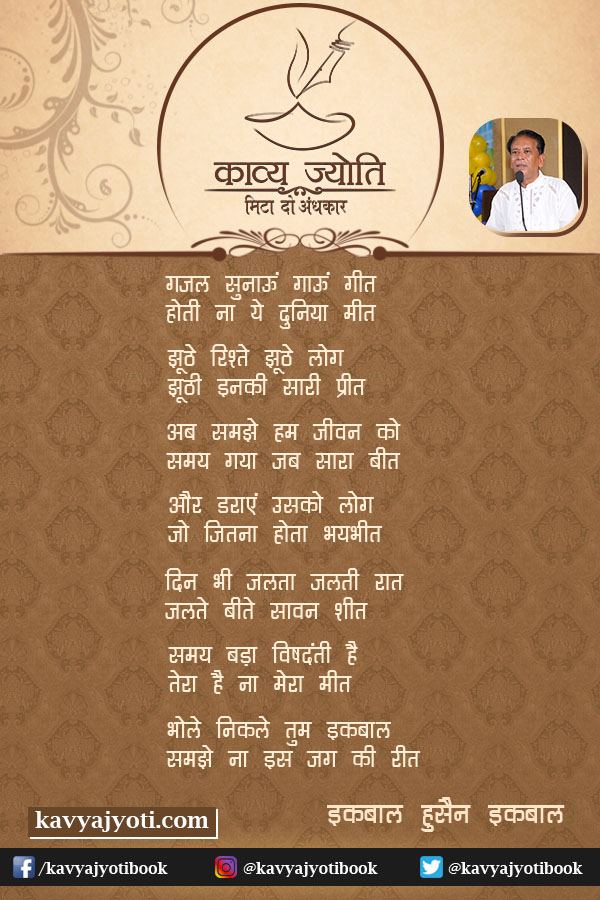 काव्य ज्योति
मिटा दो अंधकार
गजल सुनाऊं गाऊं गीत
होती ना ये दुनिया मीत
झूठे रिश्ते झूठे लोग
झूठी इनकी सारी प्रीत
अब समझे हम जीवन को
समय गया जब सारा बीत
और डराएं उसको लोग
जो जितना होता भयभीत
दिन भी जलता जलती रात
जलते बीते सावन शीत
समय बड़ा विषदंती है
तेरा है ना मेरा मीत
भोले निकले तुम इकबाल
समझे ना इस जग की रीत
इकबाल हुसैन इकबाल
kavyajyoti.com
/kavyajyotibook @kavyajyotibook @kavyajyotibook